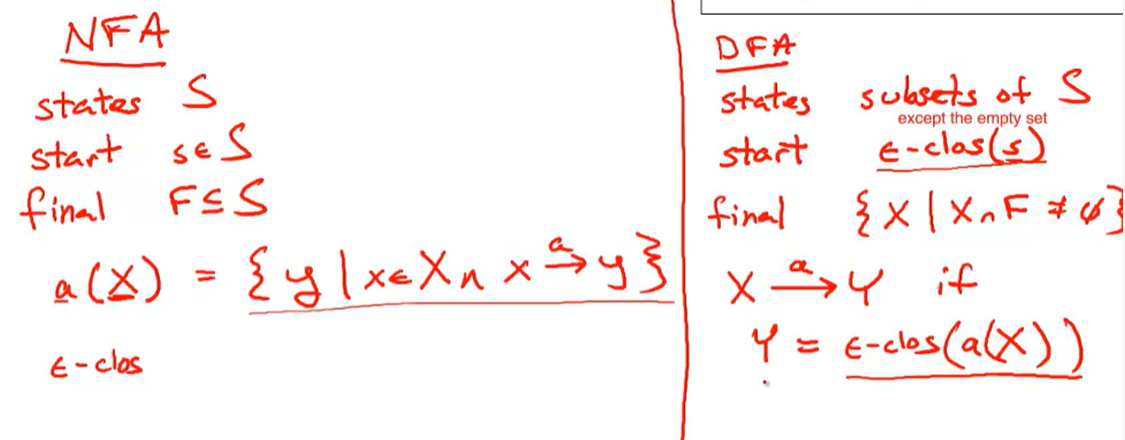 NFA
states S
start s∈S
final F⊆S
a(X) = {y | x∈X ∧ x →ᵃ y}
ε-clos
DFA
states subsets of S
except the empty set
start ε-clos(s)
final {X | X∩F ≠ ∅}
X →ᵃ Y if
Y = ε-clos(a(X))